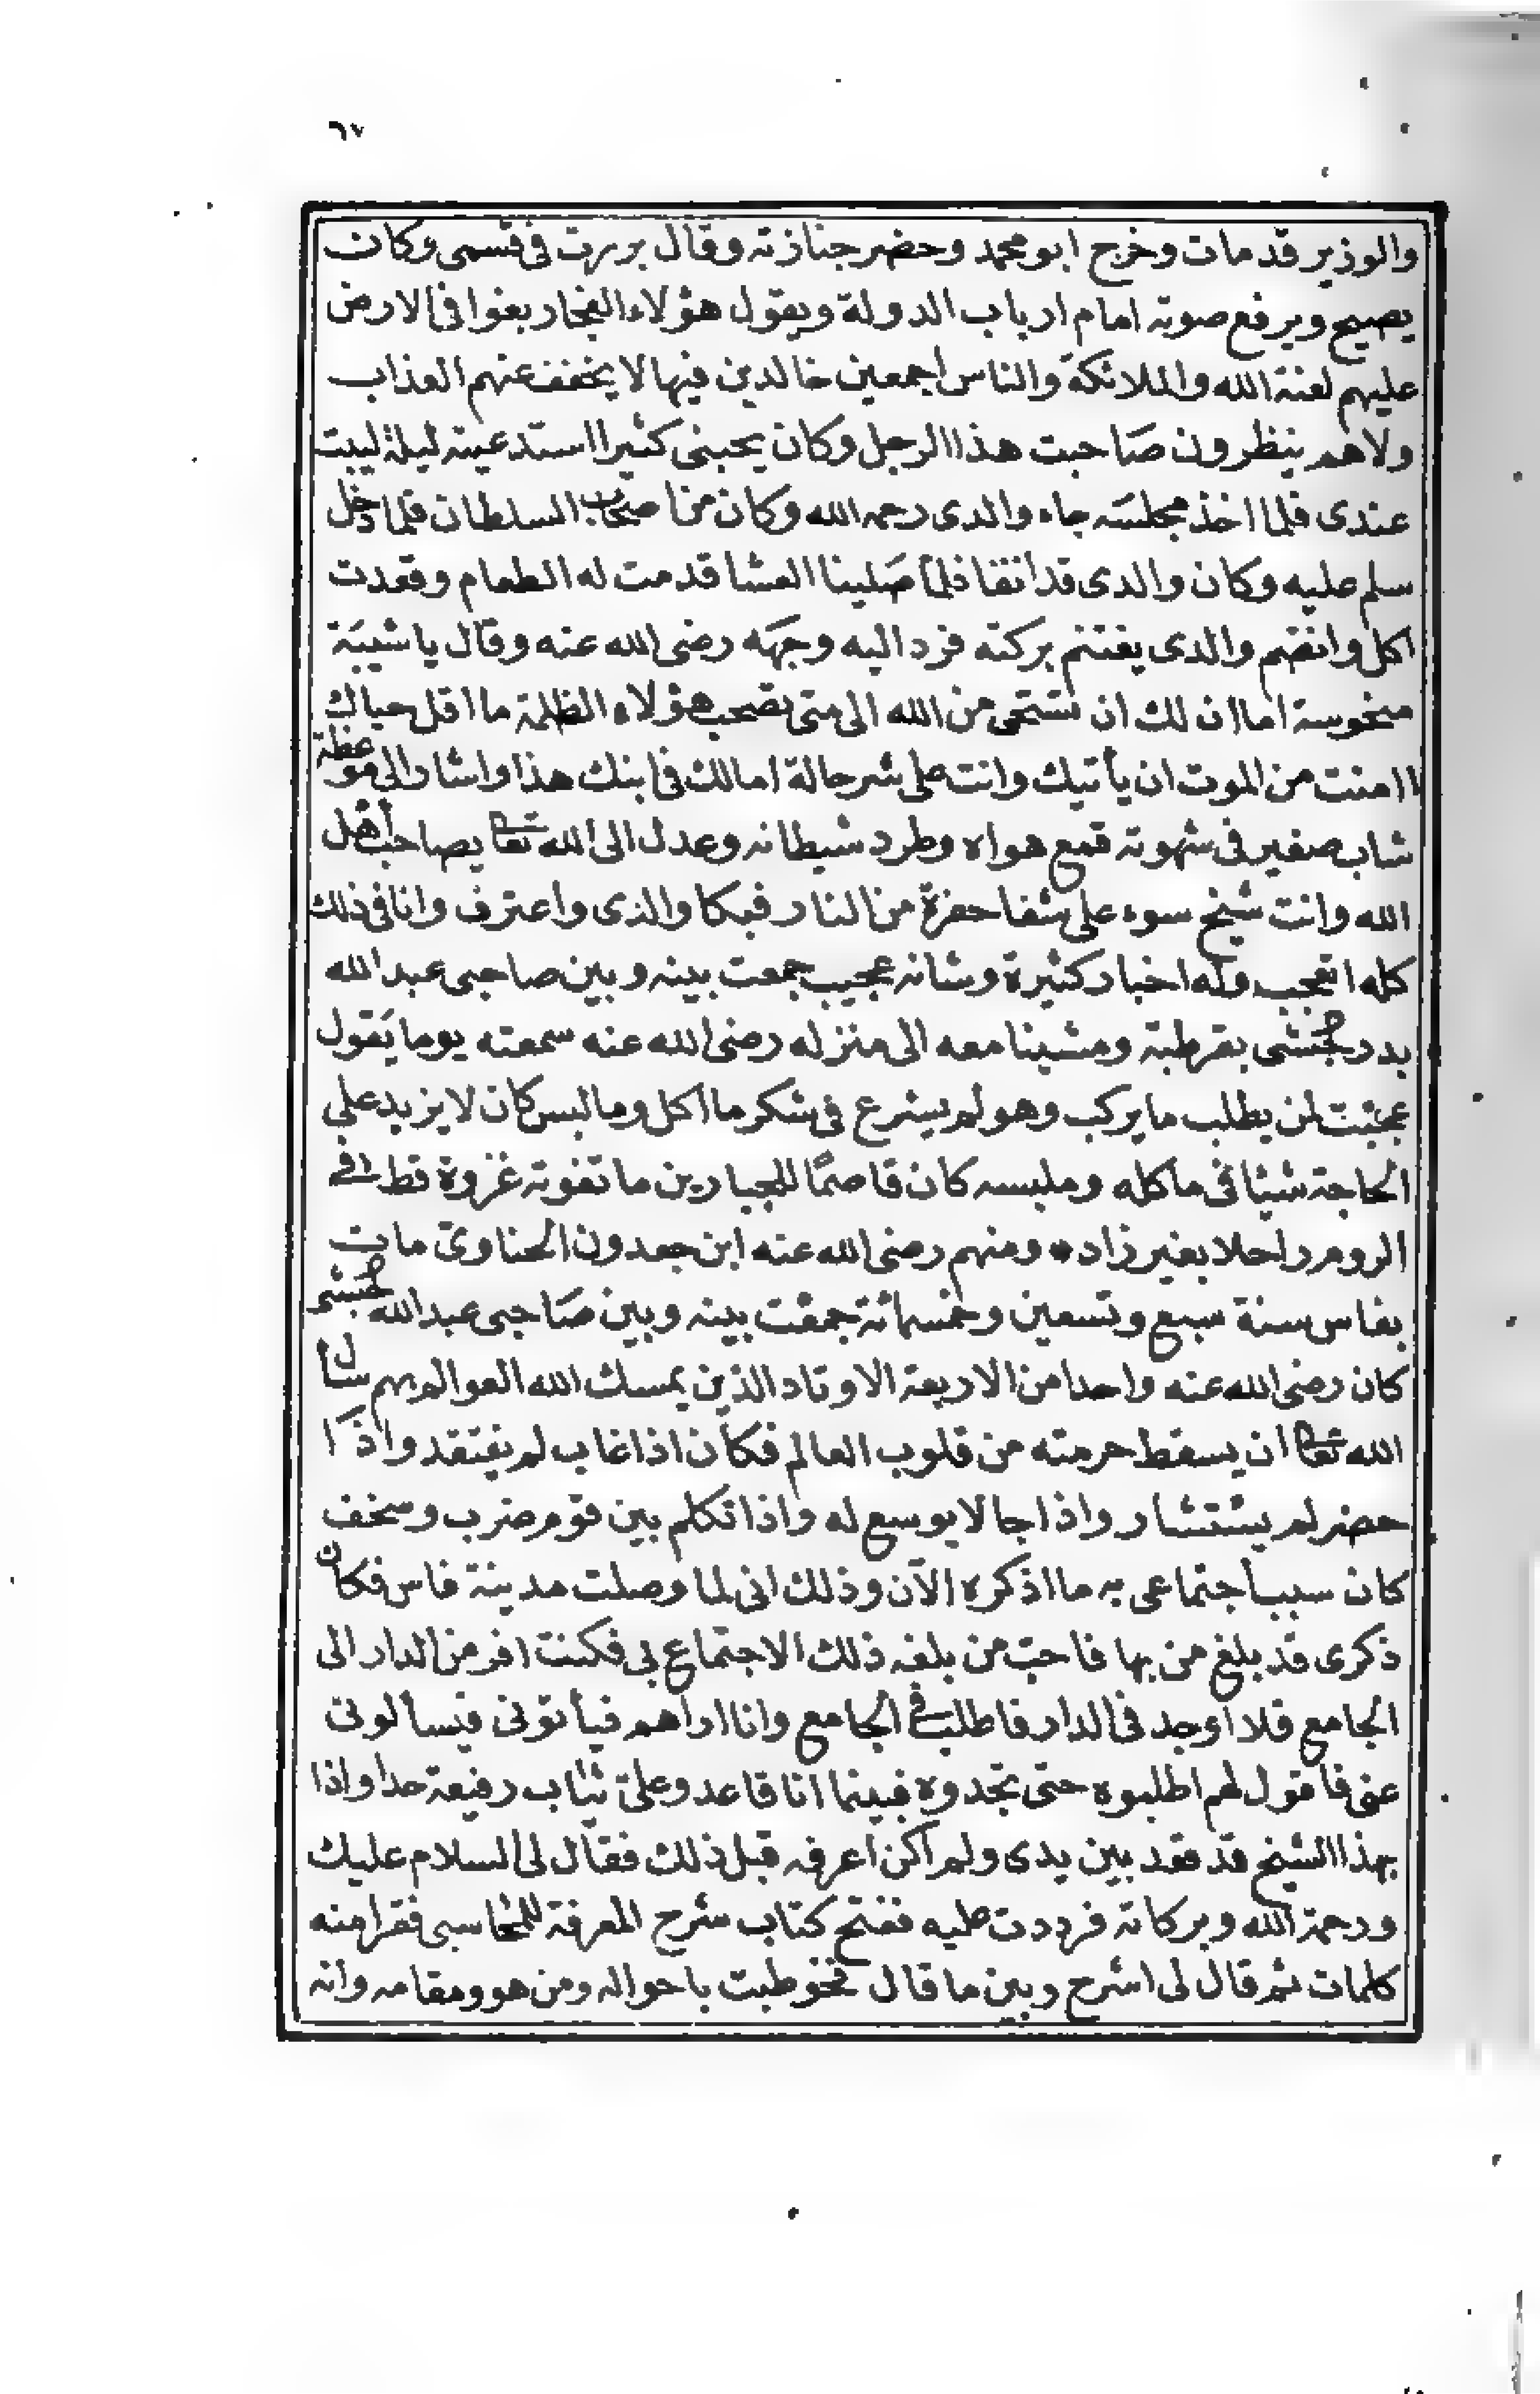 ٦٧
والوزير قد مات وخرج ابو محمد وحضر جنازته وقال بررت في قسمي وكان
يصيح ويرفع صوته امام ارباب الدولة ويقول هؤلاء الفجار بغوا في الارض
عليهم لعنة الله والملائكة والناس اجمعين خالدين فيها لا يخفف عنهم العذاب
ولا هم ينظرون صاحبت هذا الرجل وكان يحبني كثيرا استدعيته ليلة ليبت
عندي فلما اخذ مجلسه جاء والدي رحمه الله وكان من اصحاب السلطان فلما دخل
سلم عليه وكان والدي قد اتقا فلما صلينا العشا قدمت له الطعام وقعدت
اكل وانضم والدي يغتنم بركته فرد اليه وجهه رضي الله عنه وقال يا شيبة
منحوسة اما ان لك ان تستحي من الله الى متى تصحب هؤلاء الظلمة ما اقل حياك
اامنت من الموت ان يأتيك وانت على شر حالة امالك في ابنك هذا واشار الي موعظة
شاب صغير في شهوته قمع هواه وطرد شيطانه وعدل الى الله تعا يصاحب أهل
الله وانت شيخ سوء على شفا حفرة من النار فبكا والدي واعترف وانا في ذلك
كله اتعجب وله اخبار كثيرة وشانه عجيب جمعت بينه وبين صاحبي عبد الله
بدر حبشي بقرطبة ومشينا معه الى منزله رضي الله عنه سمعته يوما يقول
عجبت لمن يطلب ما يركب وهو لم يشرع في شكر ما اكل وما لبس كان لا يزيد على
الحاجة شيئا في ماكله وملبسه كان قاصمًا للجبارين ما تفوته غزوة قط في
الروم راحلا بغير زاد ومنهم رضي الله عنه ابن جعدون الحناوي مات
بفاس سنة سبع وتسعين وخمسمائة جمعت بينه وبين صاحبي عبد الله حبشي
كان رضي الله عنه واحدا من الاربعة الاوتاد الذين يمسك الله العوالم بهم سأل
الله تعا ان يسقط حرمته من قلوب العالم فكان اذا غاب لم يفتقد واذا
حضر لم يستشار واذا جا لا يوسع له واذا تكلم بين قوم ضرب وسخف
كان سبب اجتماعي به ما اذكره الآن وذلك اني لما وصلت مدينة فاس فكان
ذكري قد بلغ من بها فاحب من بلغه ذلك الاجتماع بي فكنت افر من الدار الى
الجامع فلا اوجد في الدار فاطلب في الجامع وانا اراهم فيأتوني فيسألوني
عني فاقول لهم اطلبوه حتى تجدوه فبينما انا قاعد وعلي ثياب رفيعة جدا واذا
بهذا الشيخ قد قعد بين يدي ولم اكن اعرفه قبل ذلك فقال لي السلام عليك
ورحمة الله وبركاته فرددت عليه ففتح كتاب شرح المعرفة للمحاسبي فقرا منه
كلمات ثم قال لي اشرح وبين ما قال فخوطبت باحواله ومن هو ومقامه وانه